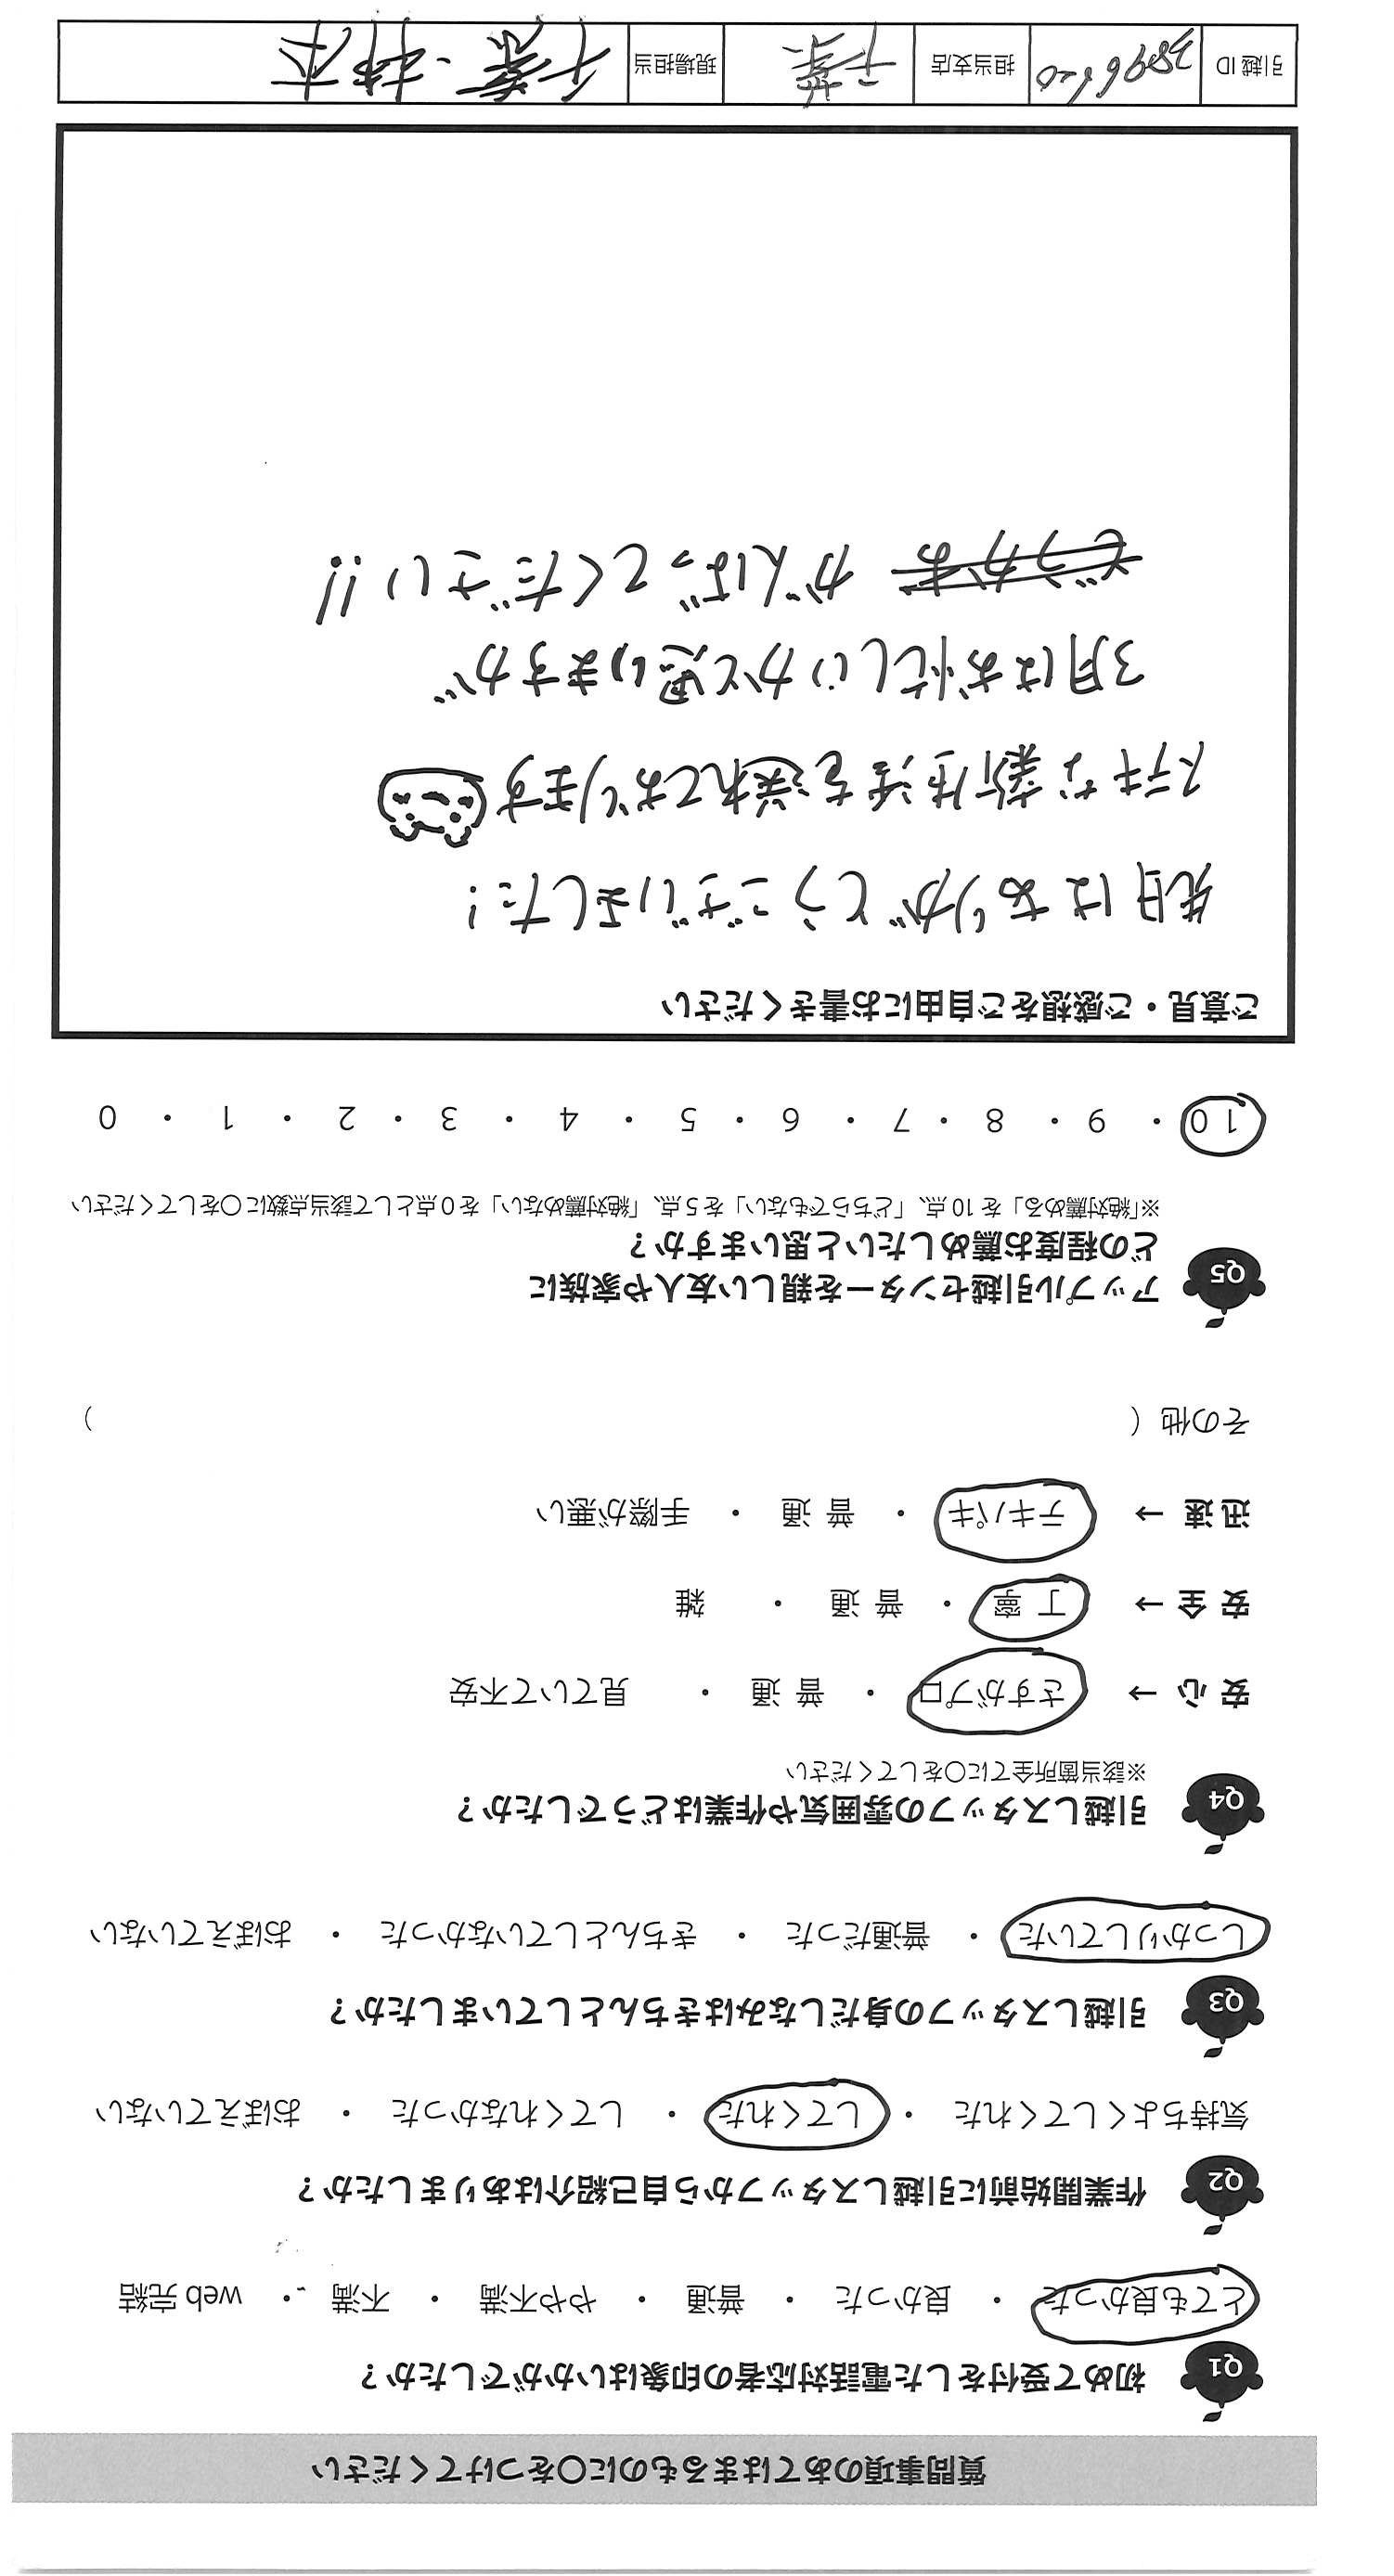 質問事項のあてはまるものに○をつけてください
Q1 初めて受付をした電話対応者の印象はいかがでしたか？
とても良かった ・ 良かった ・ 普通 ・ やや不満 ・ 不満 ・ web 完結
Q2 作業開始前に引越しスタッフから自己紹介はありましたか？
気持ちよくしてくれた ・ してくれた ・ してくれなかった ・ おぼえていない
Q3 引越しスタッフの身だしなみはきちんとしていましたか？
しっかりしていた ・ 普通だった ・ きちんとしていなかった ・ おぼえていない
Q4 引越しスタッフの雰囲気や作業はどうでしたか？
※該当箇所全てに○をしてください
安心 → さすがプロ ・ 普通 ・ 見ていて不安
安全 → 丁寧 ・ 普通 ・ 雑
迅速 → テキパキ ・ 普通 ・ 手際が悪い
その他（ ）
Q5 アップル引越センターを親しい友人や家族に
どの程度お薦めしたいと思いますか？
※「絶対薦める」を 10 点、「どちらでもない」を 5 点、「絶対薦めない」を 0 点として該当点数に○をしてください
10 ・ 9 ・ 8 ・ 7 ・ 6 ・ 5 ・ 4 ・ 3 ・ 2 ・ 1 ・ 0
ご意見・ご感想をご自由にお書きください
先日はありがとうございました！
ステキな新生活を送れております
3月はお忙しいかと思いますが
がんばってください!!
引越 ID 担当支店 千葉 現場担当 千葉・